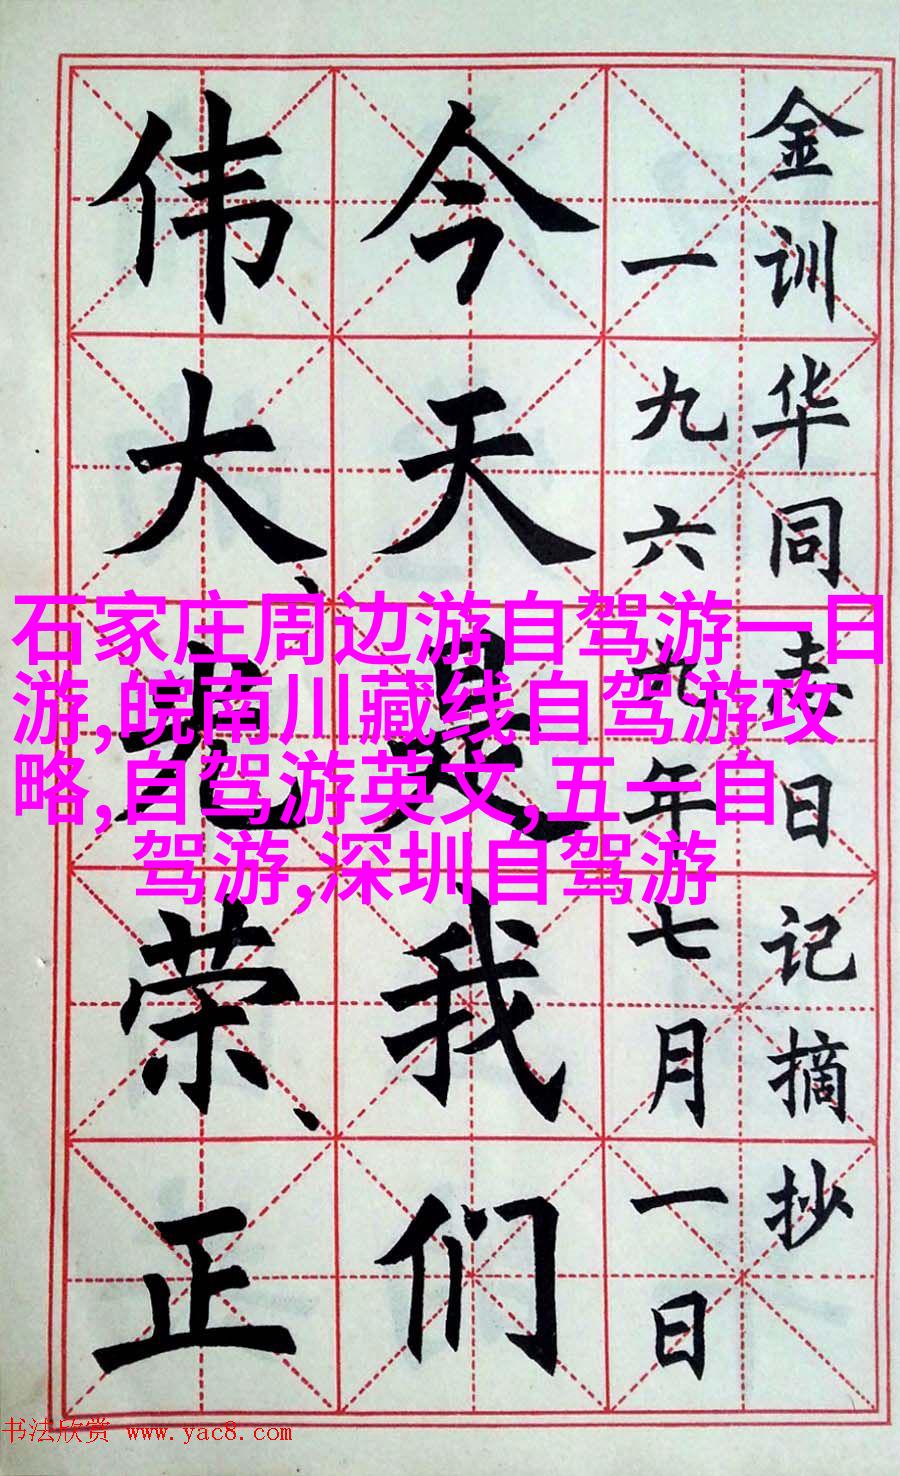 金训华同志日记摘抄
一九六九年七月一日
今天是我们
伟大、光荣、正
石家庄周边游自驾游一日
游,皖南川藏线自驾游攻
略,自驾游英文,五一自
驾游,深圳自驾游
书法欣赏 www.yac8.com